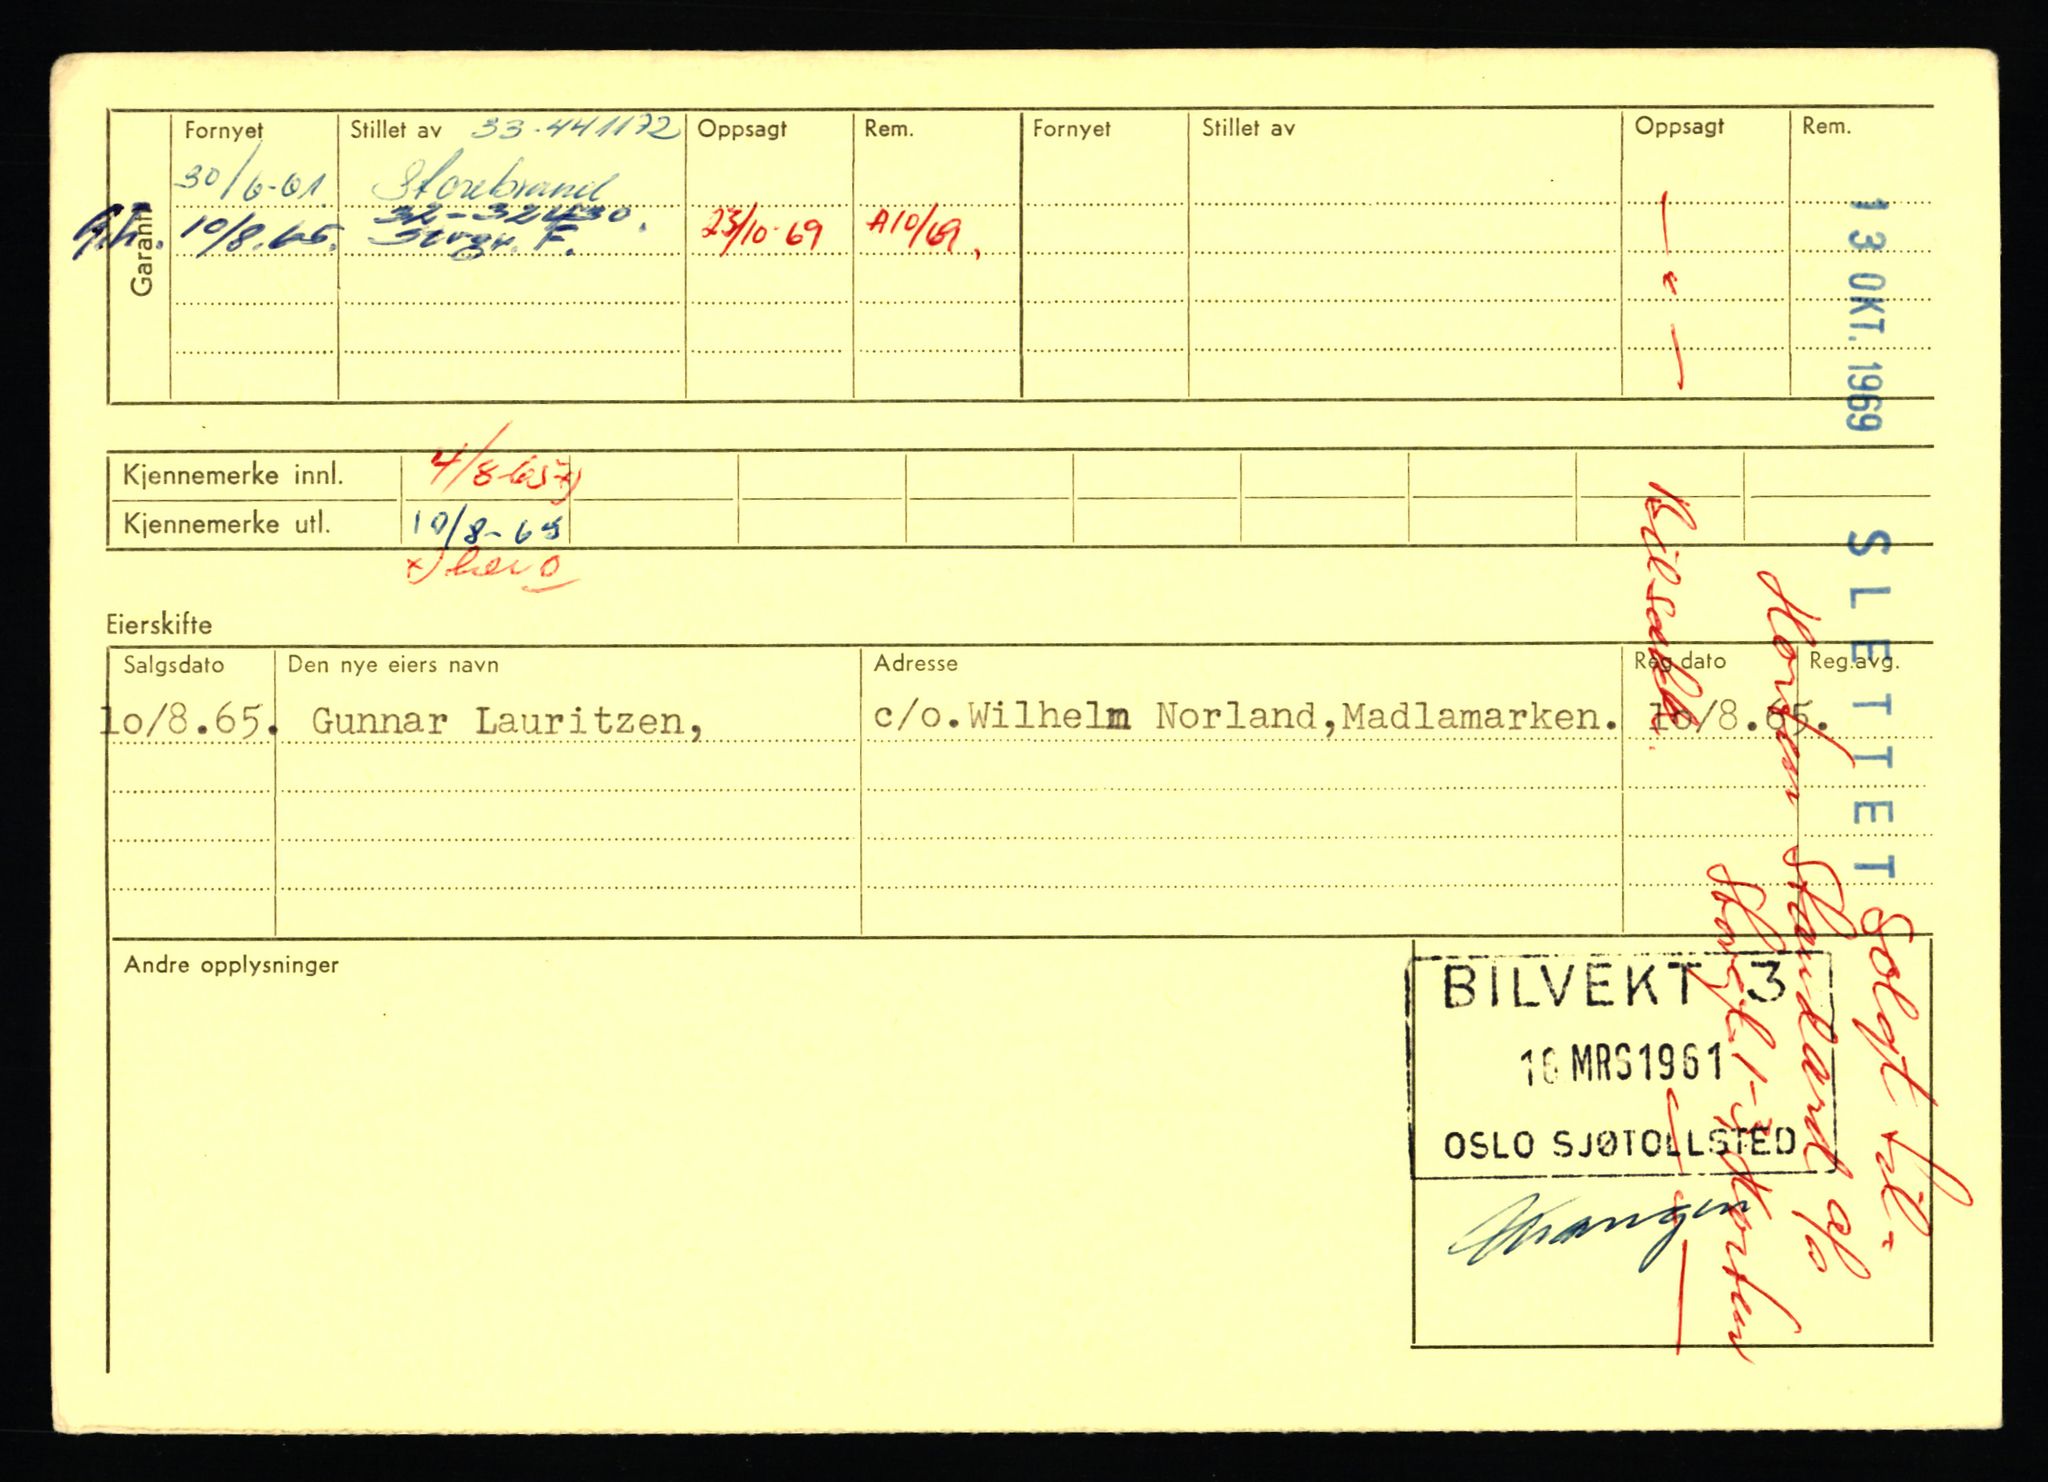 Garanti
Fornyet Stillet av 33-441172 Oppsagt Rem. Fornyet Stillet av Oppsagt Rem.
30/6-61. Storebrand
10/8.65. 32-32430. 23/10-69 A10/69.
Kjennemerke innl. 4/8-65 x)
Kjennemerke utl. 10/8-65
x)
Eierskifte
Salgsdato Den nye eiers navn Adresse Reg.dato Reg.avg.
10/8.65. Gunnar Lauritzen, c/o.Wilhelm Norland,Madlamarken. 10/8.65.
Andre opplysninger
BILVEKT 3
16 MRS1961
OSLO SJØTOLLSTED
13 OKT. 1969 SLETTET
Solgt til:
Horten Standard
1-3 Horten